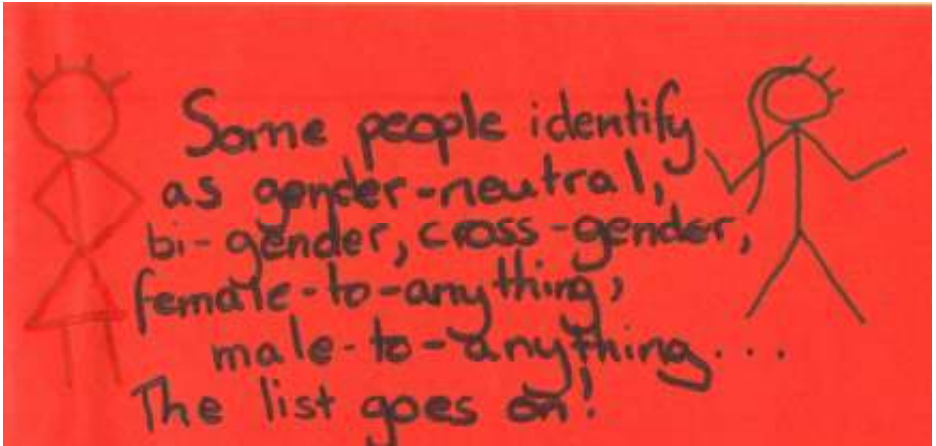 Some people identify
as gender-neutral,
bi-gender, cross-gender,
female-to-anything,
male-to-anything...
The list goes on!